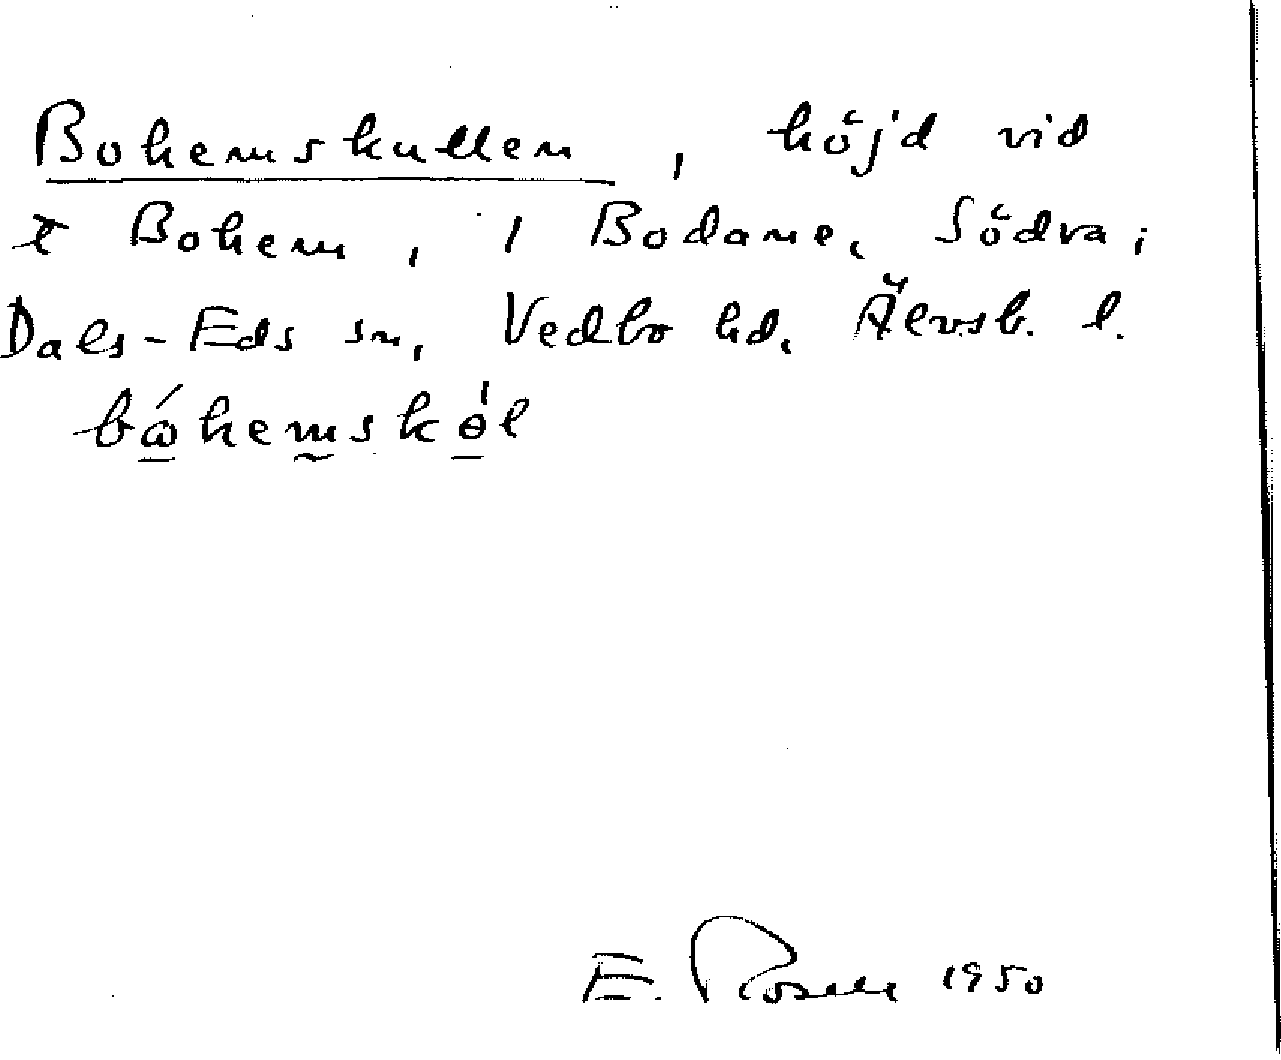 Bohemskullen, höjd vid
t Bohem, 1 Bodane, Södra,
Dals-Eds sn, Vedbo hd, Älvsb. l.
bώhem̰skө́l
E. Rosell 1950